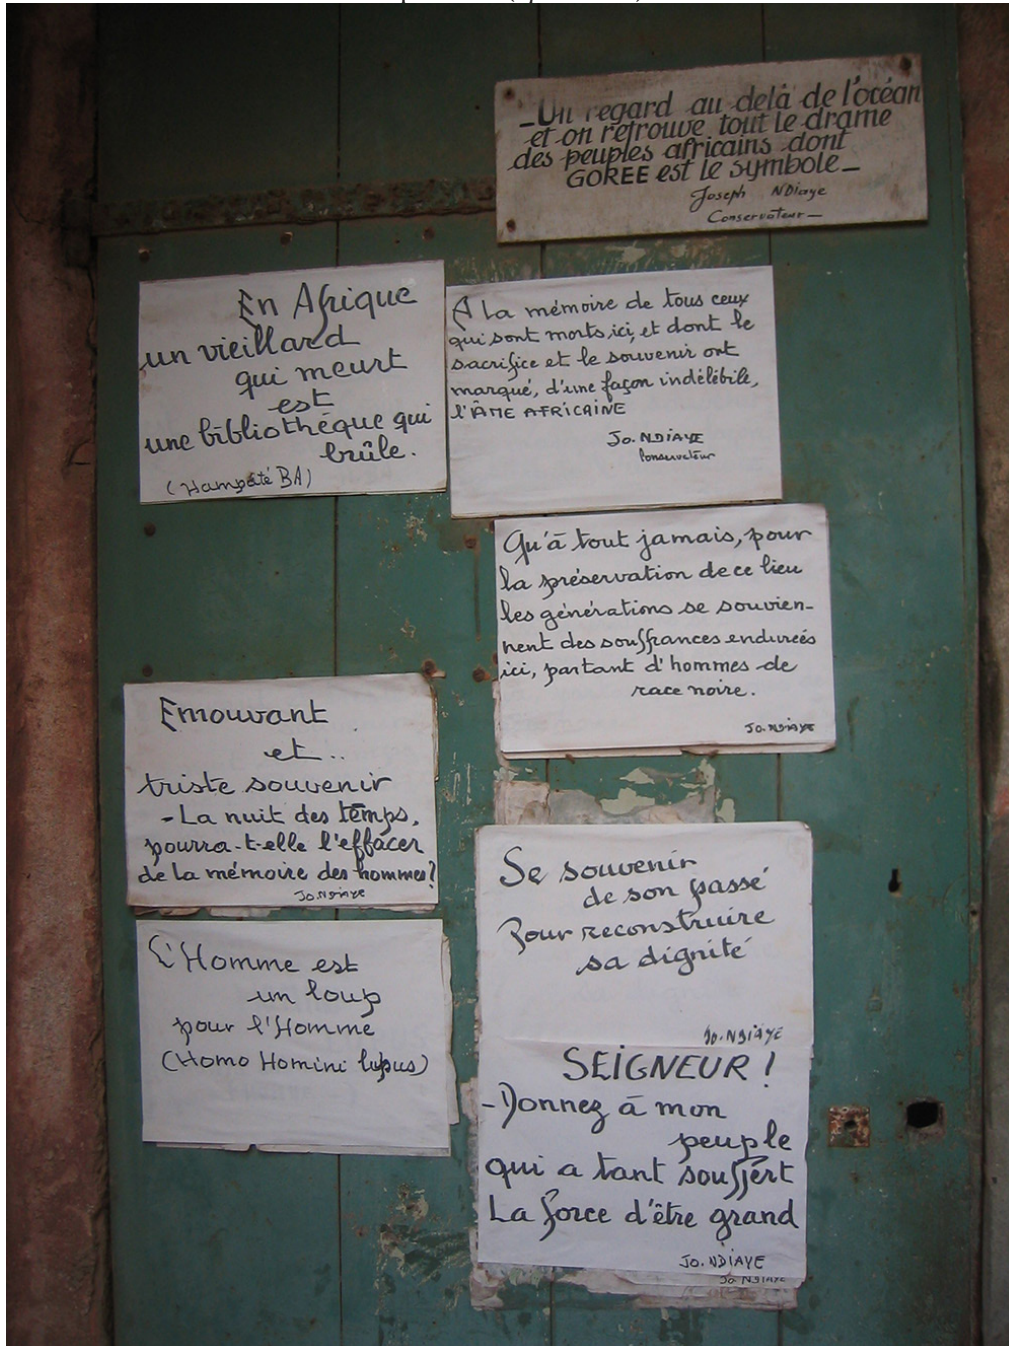 -Un regard au delà de l'océan
et on retrouve tout le drame
des peuples africains dont
GOREE est le symbole-
Joseph NDiaye
Conservateur-
En Afrique
un vieillard
qui meurt
est
une bibliothéque qui
brûle.
(Hampaté BA)
A La mémoire de tous ceux
qui sont morts ici, et dont le
sacrifice et le souvenir ont
marqué, d'une façon indélébile,
l'ÂME AFRICAINE
Jo. NDIAYE
Conservateur
Qu'à tout jamais, pour
la préservation de ce lieu
les générations se souvien-
nent des souffrances endureés
ici, par tant d'hommes de
race noire.
Jo. NDIAYE
Emouvant
et..
triste souvenir
- La nuit des temps,
pourra-t-elle l'effacer
de la mémoire des hommes?
Jo. NDIAYE
Se souvenir
de son passé
Pour reconstruire
sa dignité
Jo. NDIAYE
L'Homme est
un loup
pour l'Homme
(Homo Homini lupus)
SEIGNEUR !
-Donnez à mon
peuple
qui a tant souffert
La force d'être grand
Jo. NDIAYE
Jo NDIAYE